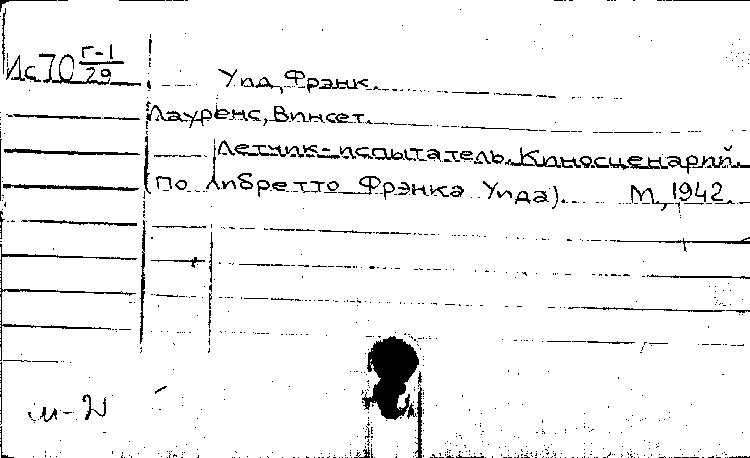 Ис70 Г-1/29
Уид, Фрэнк.
Лауренс, Винсет.
Летчик-испытатель. Киносценарий.
(По либретто Фрэнка Уида). М., 1942.